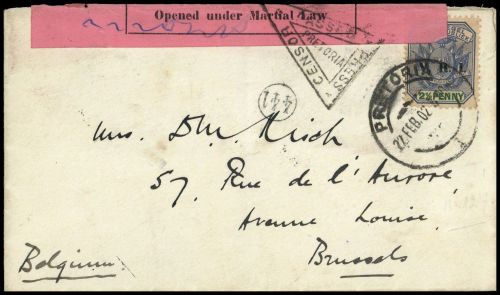 Opened under Martial Law
PASSED PRESS
CENSOR
PRETORIA
PRETORIA
22 FEB. 02
2½ PENNY
441
Mrs. D M. Kisch
57, Rue de l'Aurore,
Avenue Louise,
Brussels
Belgium